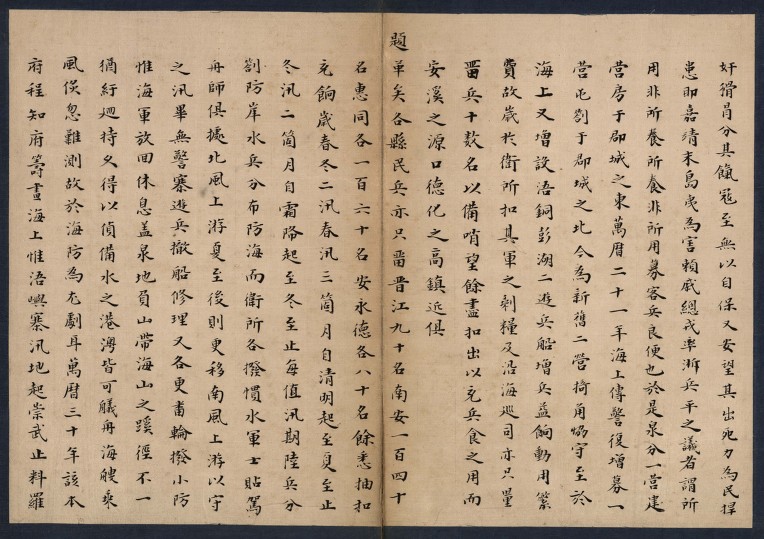 奸猾冐分其餼冦至無以自保又安望其出死力為民捍
患即嘉靖末島夷為害賴戚總戎率浙兵平之議者謂所
用非所養所養非所用募客兵良便也於是泉分一營建
營房于郡城之東萬曆二十一年海上傳警復增募一
營屯劄于郡城之北今為新舊二營掎角協守至於
海上又增設浯銅彭湖二遊兵船增兵益餉動用繁
費故歲扵衛所扣其軍之剩糧及沿海巡司亦只量
畱兵十數名以備哨望餘盡扣出以充兵食之用而
安溪之源口德化之高鎮近俱
題革矣各縣民兵亦只畱晋江九十名南安一百四十
名惠同各一百六十名安永德各八十名餘悉抽扣
充餉歲春冬二汛春汛三箇月自清明起至夏至止
冬汛二箇月自霜降起至冬至止每值汛期陸兵分
劄防岸水兵分布防海而衛所各撥慣水軍士貼駕
舟師俱據北風上游夏至後則更移南風上游以守
之汛畢無警寨遊兵撤船修理又各更畨輪撥小防
惟海軍放回休息盖泉地負山帶海山之蹊徑不一
猶紆廻持久得以偵備水之港澳皆可艤舟海艘乗
風倐忽難測故於海防為尤劇耳萬曆三十年該本
府程知府籌畫海上惟浯嶼寨汛地起崇武止料羅